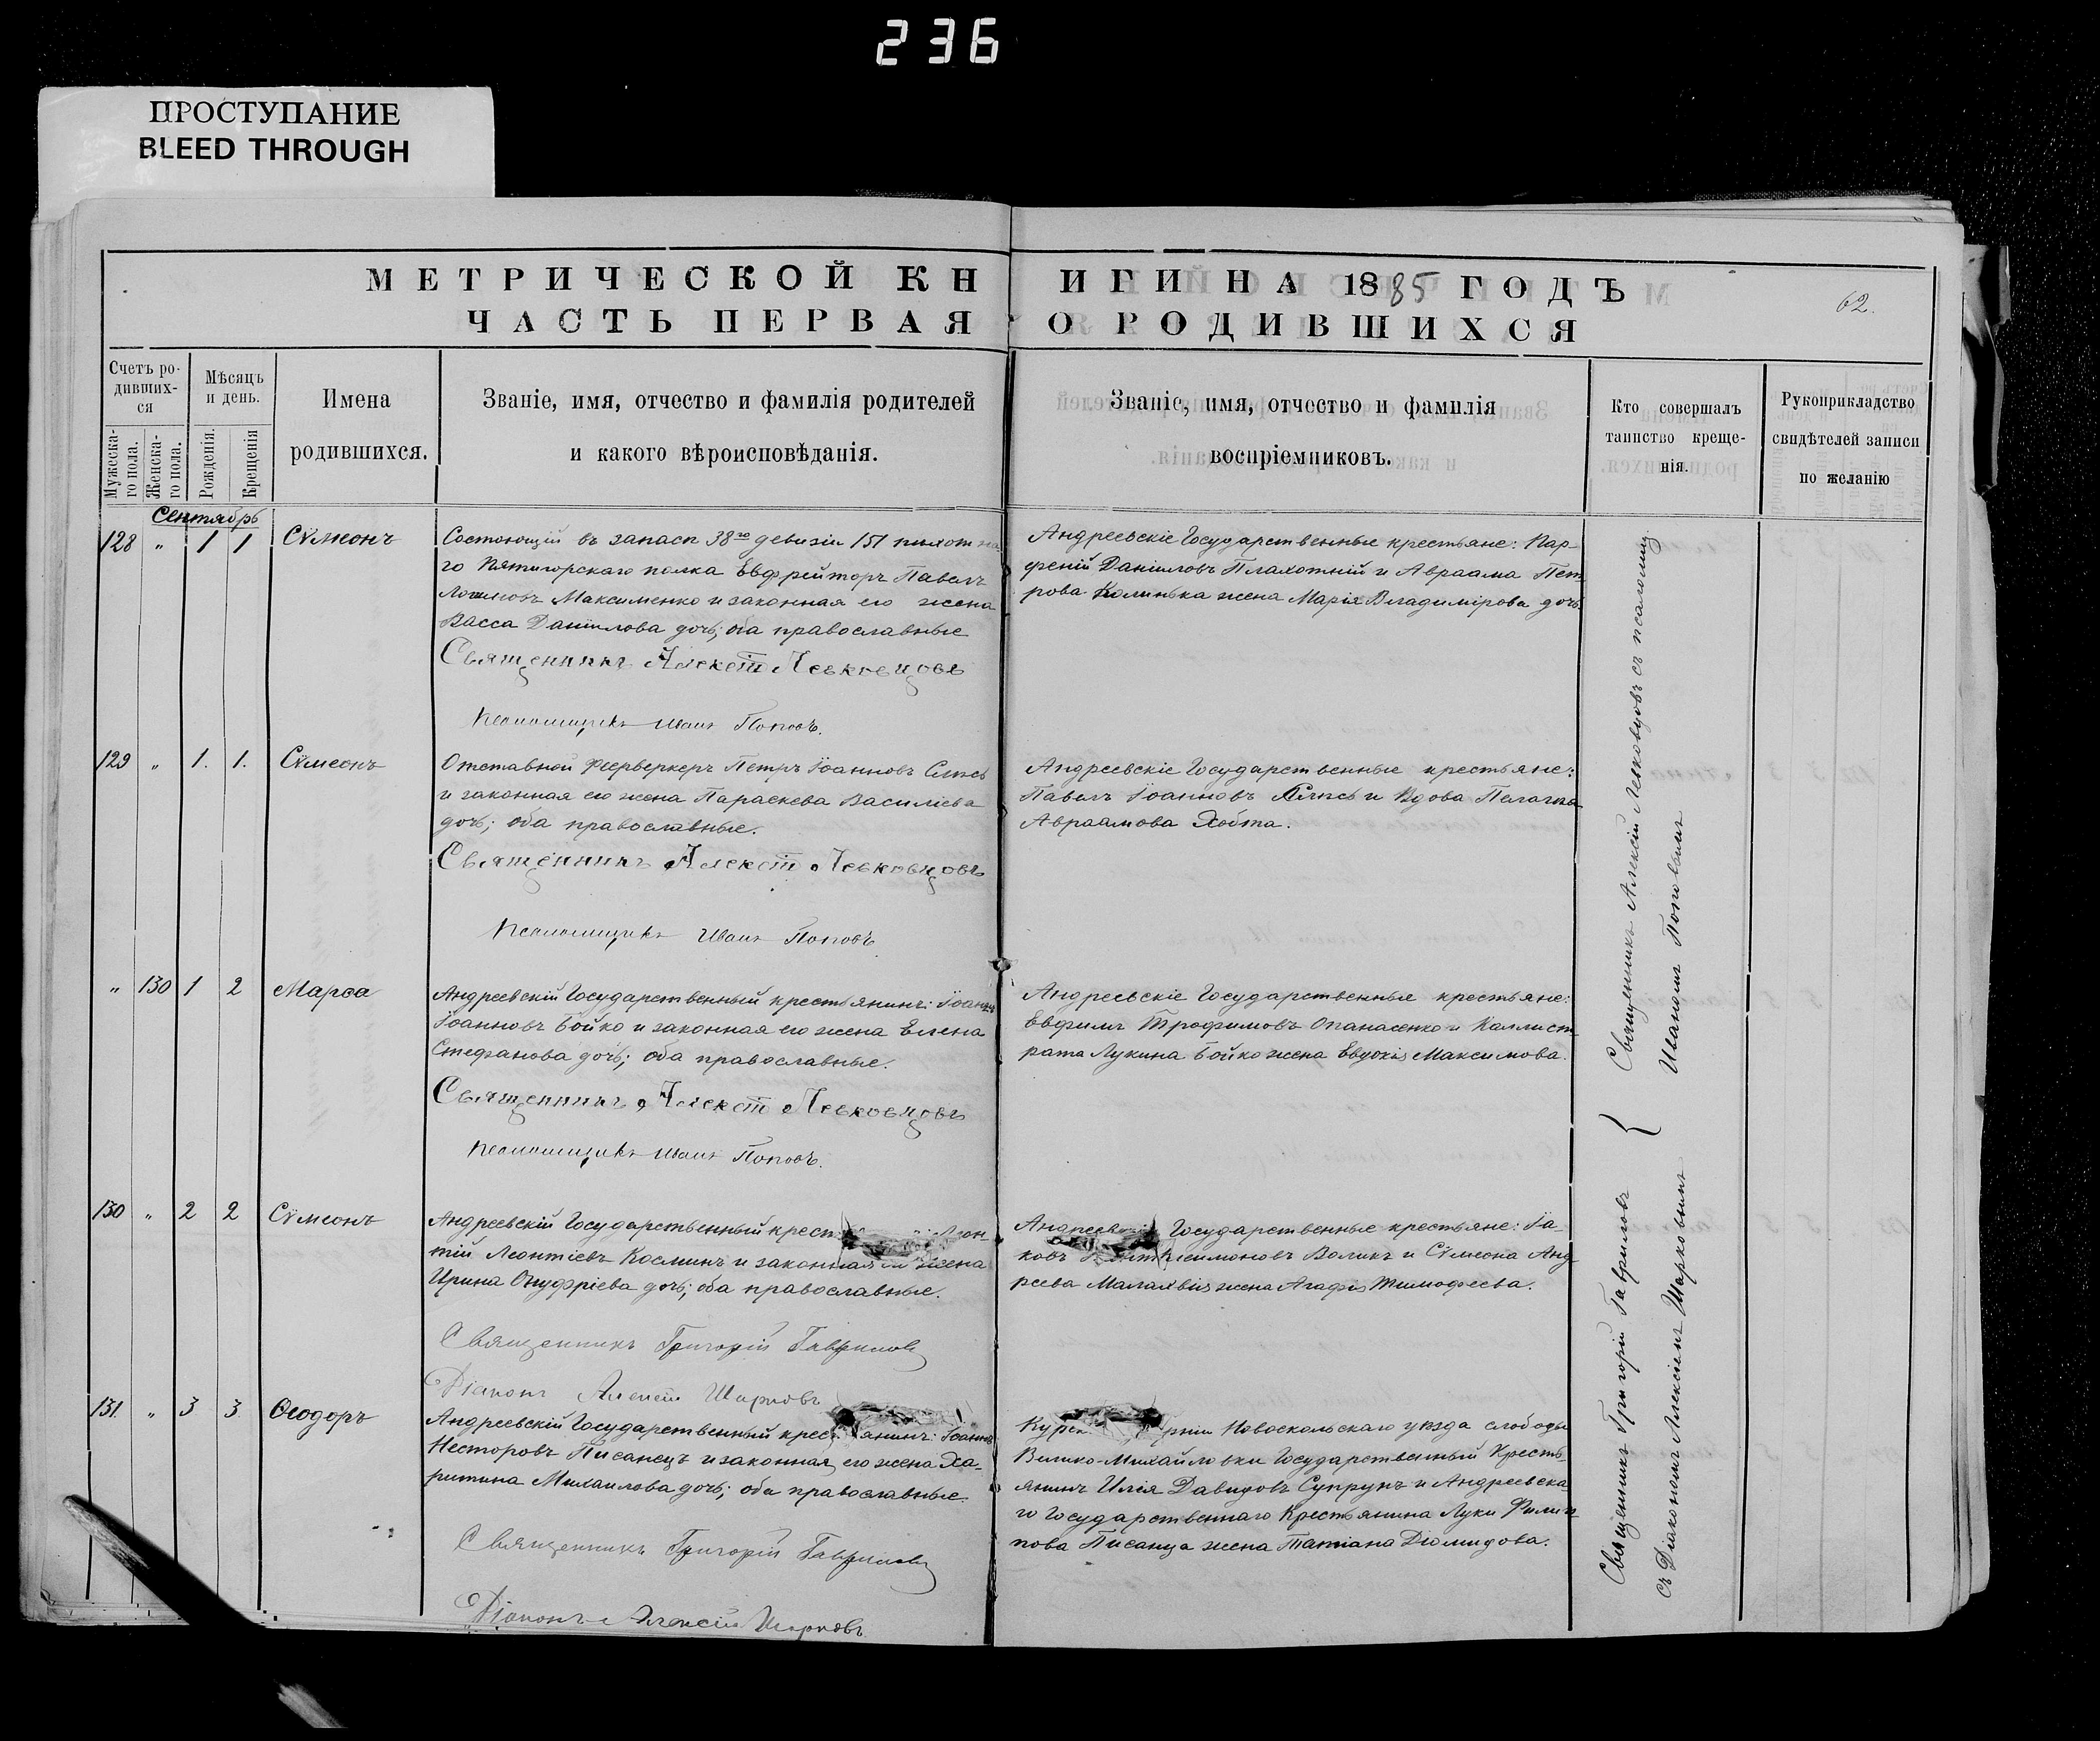 236
ПРОСТУПАНИЕ
BLEED THROUGH
МЕТРИЧЕСКОЙ КНИГИ НА 1885 ГОДЪ
62.
ЧАСТЬ ПЕРВАЯ О РОДИВШИХСЯ
Счетъ ро-
дивших-
ся
Мужеска-
го пола.
Женска-
го пола.
Мѣсяцъ
и день.
Рожденія.
Крещенія
Имена
родившихся.
Званіе, имя, отчество и фамилія родителей
и какого вѣроисповѣданія.
Званіе, имя, отчество и фамилія
воспріемниковъ.
Кто совершалъ
таинство креще-
нія.
Рукоприкладство
свидѣтелей записи
по желанію
Сентябрь
128 " 1 1 Сѵмеонъ
Состоящій въ запасѣ 38го девизіи 151 пихотна
го Пятигорскаго полка Ефрейторъ Павелъ
Максименко и законная его жена
Васса Даніилова дочь; оба православные
Священникъ Алексій Левковцовъ
Псаломщикъ Иванъ Поповъ.
Андреевскіе Государственные крестьяне: Пар-
феній Даніиловъ Плахотній и Авраама Пет
рова Калинька жена Марія Владимірова дочь.
129 " 1. 1. Сѵмеонъ
Отставной Феерверкеръ Петръ Іоанновъ
и законная его жена Параскева Василіева
дочь; оба православные.
Священникъ Алексій Левковцовъ
Псаломщикъ Иванъ Поповъ
Андреевскіе Государственные крестьяне:
Павелъ Іоанновъ и Вдова Пелагія
Авраамова Хобта.
" 130 1 2 Марѳа
Андреевскій Государственный крестьянинъ: Іоаннъ
Іоанновъ Бойко и законная его жена Елена
Стефанова дочь; оба православные.
Священникъ Алексій Левковцовъ
Псаломщикъ Иванъ Поповъ.
Андреевскіе Государственные крестьяне:
Евфимъ Трофимовъ Опанасенко и Каллист
рата Лукина Бойко жена Евдокія Максимова.
130 " 2 2 Сѵмеонъ
Андреевскій Государственный крест Леон-
тій Леонтіевъ Косминъ и законная жена
Ирина Онуфріева дочь; оба православные.
Священникъ Григорій Гавриловъ
Діаконъ Алексій Шарковъ
Государственные крестьяне: Іа
ковъ Воликъ и Сѵмеона Анд
реева жена Агафія Тимофеева.
131 " 3 3 Ѳеодоръ
Андреевскій Государственный крес янинъ: Іоаннъ
Несторовъ Писанецъ и законная его жена Ха-
ритина Михаилова дочь; оба православные.
Священникъ Григорій Гавриловъ
Діаконъ Алексій Шарковъ
Курск рніи Новоскольскаго уѣзда слободы
Велико-Михайловки Государственный Кресть
янинъ Илія Давидовъ Супрунъ и Андреевска
го Государственнаго Крестьянина Луки Филип
пова Писанца жена Татіана Діомидова.
Священникъ Алексій Левковцовъ съ псаломщ
Иваномъ Поповымъ
Священникъ Григорій Гавриловъ
съ Діакономъ Алексіемъ Шарковымъ